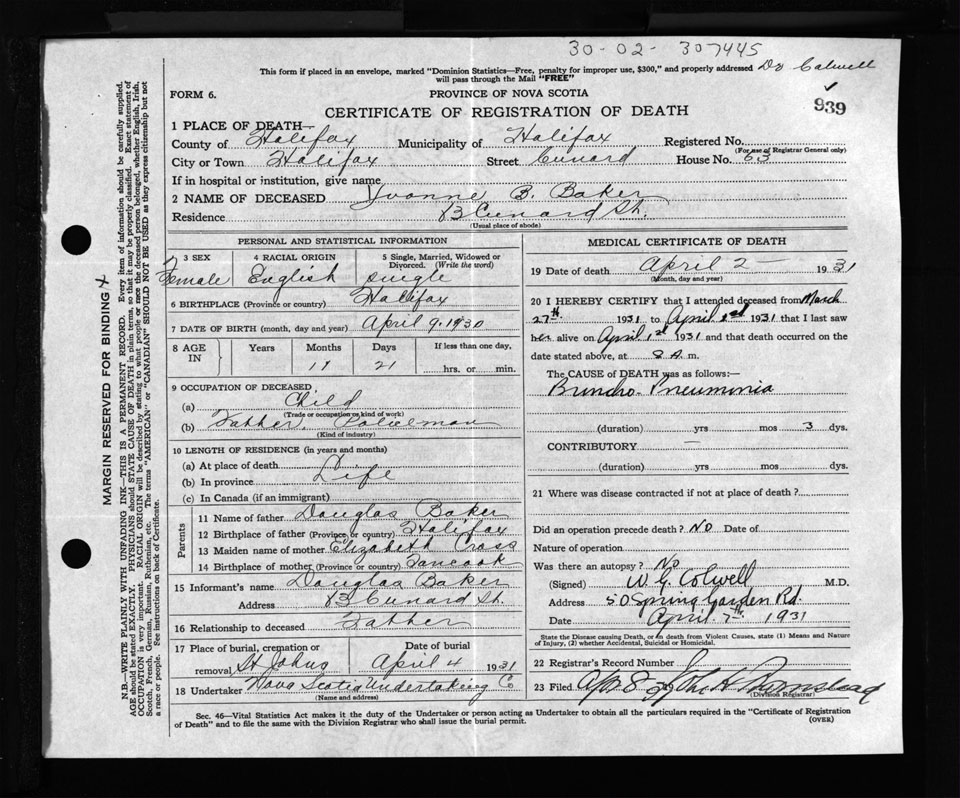 30-02- 307445
This form if placed in an envelope, marked "Dominion Statistics—Free, penalty for improper use, $300," and properly addressed Dr Colwell
will pass through the Mail "FREE"
FORM 6.
PROVINCE OF NOVA SCOTIA
939
CERTIFICATE OF REGISTRATION OF DEATH
1 PLACE OF DEATH—
County of Halifax Municipality of Halifax Registered No.
(For use of Registrar General only)
City or Town Halifax Street Cunard House No. 83
If in hospital or institution, give name
2 NAME OF DECEASED Yvonne B. Baker
Residence 83 Cunard St.
(Usual place of abode)
PERSONAL AND STATISTICAL INFORMATION
3 SEX 4 RACIAL ORIGIN 5 Single, Married, Widowed or
Divorced. (Write the word)
Female English single
6 BIRTHPLACE (Province or country) Halifax
7 DATE OF BIRTH (month, day and year) April 9. 1930
8 AGE IN Years Months Days If less than one day,
11 21 hrs. or min.
9 OCCUPATION OF DECEASED
(a) Child
(Trade or occupation or kind of work)
(b) Father, Policeman
(Kind of industry)
10 LENGTH OF RESIDENCE (in years and months)
(a) At place of death
(b) In province Life
(c) In Canada (if an immigrant)
Parents
11 Name of father Douglas Baker
12 Birthplace of father (Province or country) Halifax
13 Maiden name of mother Elizabeth Cross
14 Birthplace of mother (Province or country) Tancook
15 Informant's name Douglas Baker
Address 83 Cunard St.
16 Relationship to deceased Father
17 Place of burial, cremation or Date of burial
removal St Johns April 4 1931
18 Undertaker Nova Scotia Undertaking Co
(Name and address)
MEDICAL CERTIFICATE OF DEATH
19 Date of death April 2 — 1931
(Month, day and year)
20 I HEREBY CERTIFY that I attended deceased from March
27th 1931 to April 1st 1931 that I last saw
her alive on April 1st 1931 and that death occurred on the
date stated above, at 8 A. m.
The CAUSE of DEATH was as follows:—
Broncho-Pneumonia
(duration) yrs mos 3 dys.
CONTRIBUTORY —
(duration) yrs. mos. dys.
21 Where was disease contracted if not at place of death?
Did an operation precede death? No Date of
Nature of operation
Was there an autopsy? No
(Signed) W G. Colwell M.D.
Address 50 Spring Garden Rd.
Date April 7th 1931
State the Disease causing Death, or in death from Violent Causes, state (1) Means and Nature
of Injury, (2) whether Accidental, Suicidal or Homicidal.
22 Registrar's Record Number
23 Filed Apr 8
(Division Registrar)
Sec. 46—Vital Statistics Act makes it the duty of the Undertaker or person acting as Undertaker to obtain all the particulars required in the "Certificate of Registration
of Death" and to file the same with the Division Registrar who shall issue the burial permit.
(OVER)
MARGIN RESERVED FOR BINDING
N.B.—WRITE PLAINLY WITH UNFADING INK—THIS IS A PERMANENT RECORD. Every item of information should be carefully supplied.
AGE should be stated EXACTLY. PHYSICIANS should STATE CAUSE OF DEATH in plain terms, so that it may be properly classified. Exact statement of
OCCUPATION is very important. RACIAL ORIGIN will be described by stating to what people or race the deceased person belonged, whether English, Irish,
Scotch, French, German, Russian, Ruthenian, etc. The terms "AMERICAN" or "CANADIAN" SHOULD NOT BE USED as they express citizenship but not
a race or people. See instructions on back of Certificate.